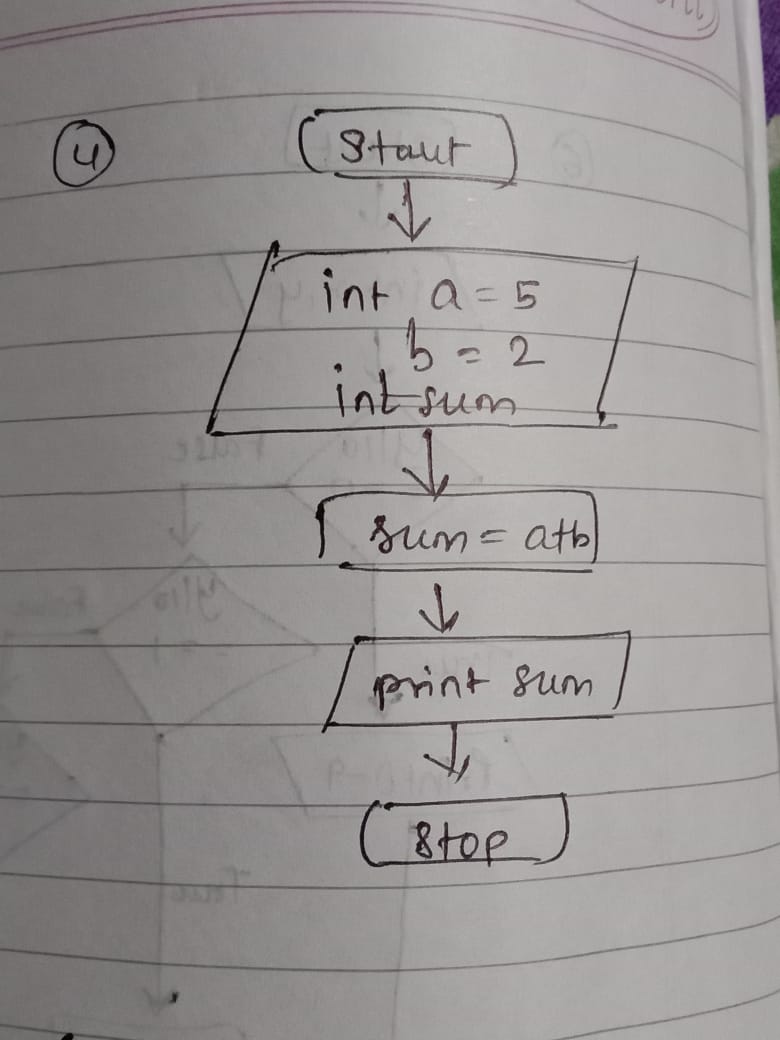 4
Start
int a = 5
b = 2
int sum
sum = a+b
print sum
Stop